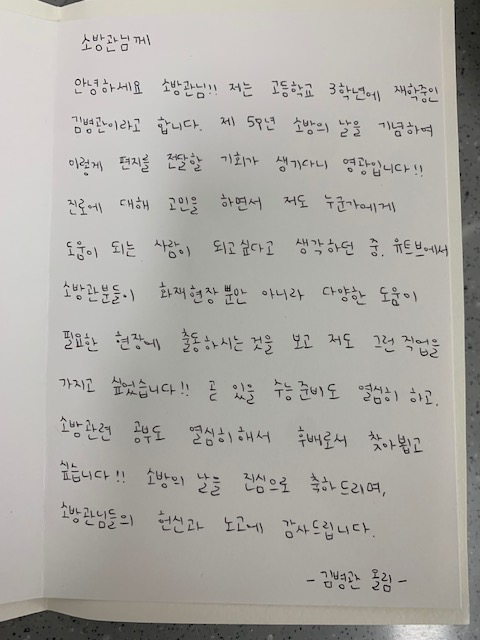 소방관님께
안녕하세요 소방관님!! 저는 고등학교 3학년에 재학중인
김병관이라고 합니다. 제 59년 소방의 날을 기념하여
이렇게 편지를 전달할 기회가 생기다니 영광입니다!!
진로에 대해 고민을 하면서 저도 누군가에게
도움이 되는 사람이 되고싶다고 생각하던 중, 유트브에서
소방관분들이 화재현장 뿐만 아니라 다양한 도움이
필요한 현장에 출동하시는 것을 보고 저도 그런 직업을
가지고 싶었습니다!! 곧 있을 수능 준비도 열심히 하고,
소방관련 공부도 열심히해서 후배로서 찾아뵙고
싶습니다!! 소방의 날을 진심으로 축하드리며,
소방관님들의 헌신과 노고에 감사드립니다.
- 김병관 올림 -